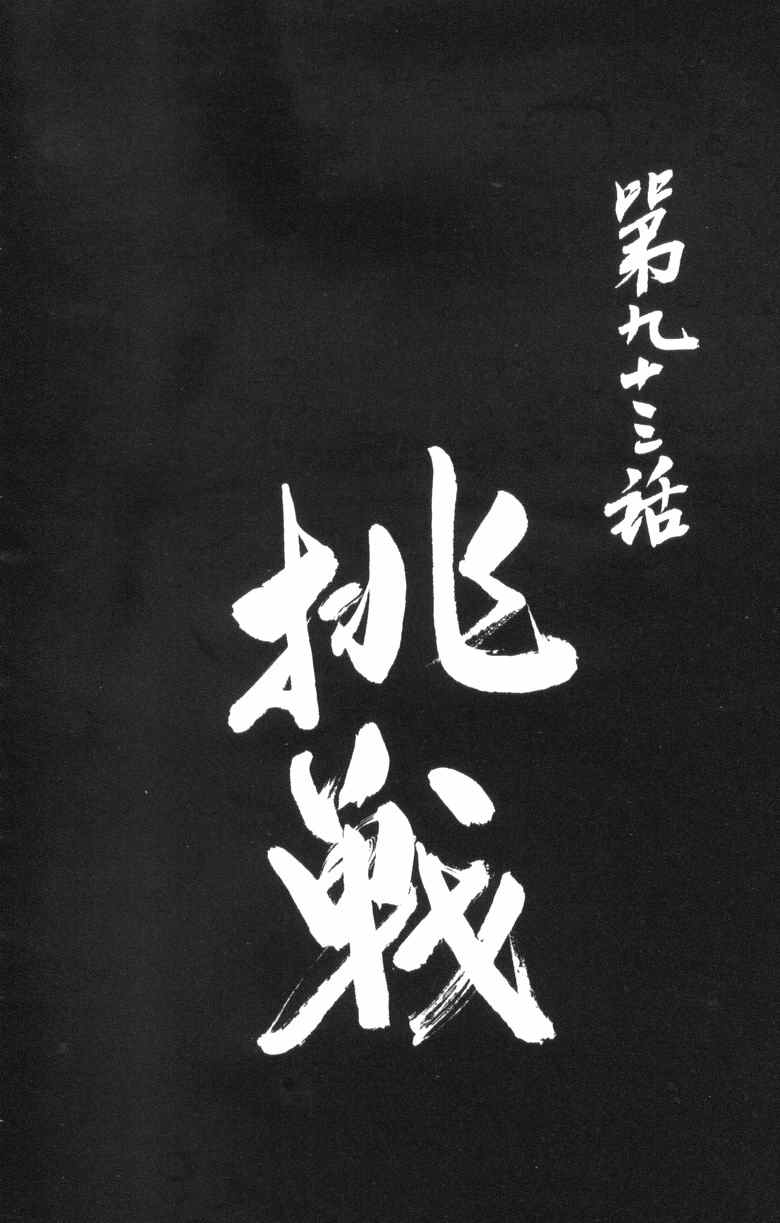 第九十三話
挑戦